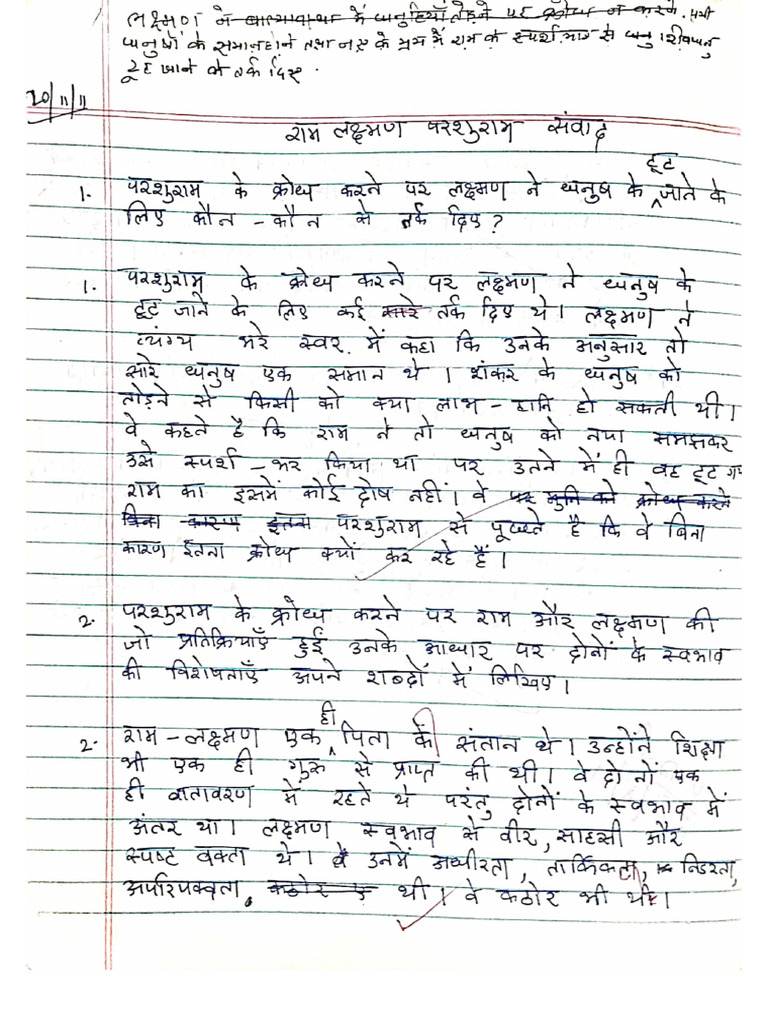 लक्ष्मण ने बाल्यावस्था में धनुहियाँ तोड़ने पर क्रोध न करने, सभी
धनुषों के समान होने तथा नए के भ्रम में राम के स्पर्श मात्र से धनु शिवधनु
टूट जाने के तर्क दिए.
20/11/11
राम लक्ष्मण परशुराम संवाद
1. परशुराम के क्रोध करने पर लक्ष्मण ने धनुष के टूट जाने के
लिए कौन - कौन से तर्क दिए?
1. परशुराम के क्रोध करने पर लक्ष्मण ने धनुष के
टूट जाने के लिए कई सारे तर्क दिए थे। लक्ष्मण ने
व्यंग्य भरे स्वर में कहा कि उनके अनुसार तो
सारे धनुष एक समान थे। शंकर के धनुष को
तोड़ने से किसी को क्या लाभ - हानि हो सकती थी।
वे कहते है कि राम ने तो धनुष को नया समझकर
उसे स्पर्श - भर किया था पर उतने में ही वह टूट ग
राम का इसमें कोई दोष नहीं। वे पर मुनि को क्रोध करते
बिना कारण इतना परशुराम से पूछते है कि वे बिना
कारण इतना क्रोध क्यों कर रहे हैं।
2. परशुराम के क्रोध करने पर राम और लक्ष्मण की
जो प्रतिक्रियाएँ हुईं उनके आधार पर दोनों के स्वभाव
की विशेषताएँ अपने शब्दों में लिखिए।
2. राम - लक्ष्मण एक ही पिता की संतान थे। उन्होंने शिक्षा
भी एक ही गुरु से प्राप्त की थी। वे दोनों एक
ही वातावरण में रहते थे परंतु दोनों के स्वभाव में
अंतर था। लक्ष्मण स्वभाव से वीर, साहसी और
स्पष्ट वक्ता थे। उनमें अधीरता, तार्किकता, निडरता,
अपरिपक्वता, कठोर थी। वे कठोर भी थे।